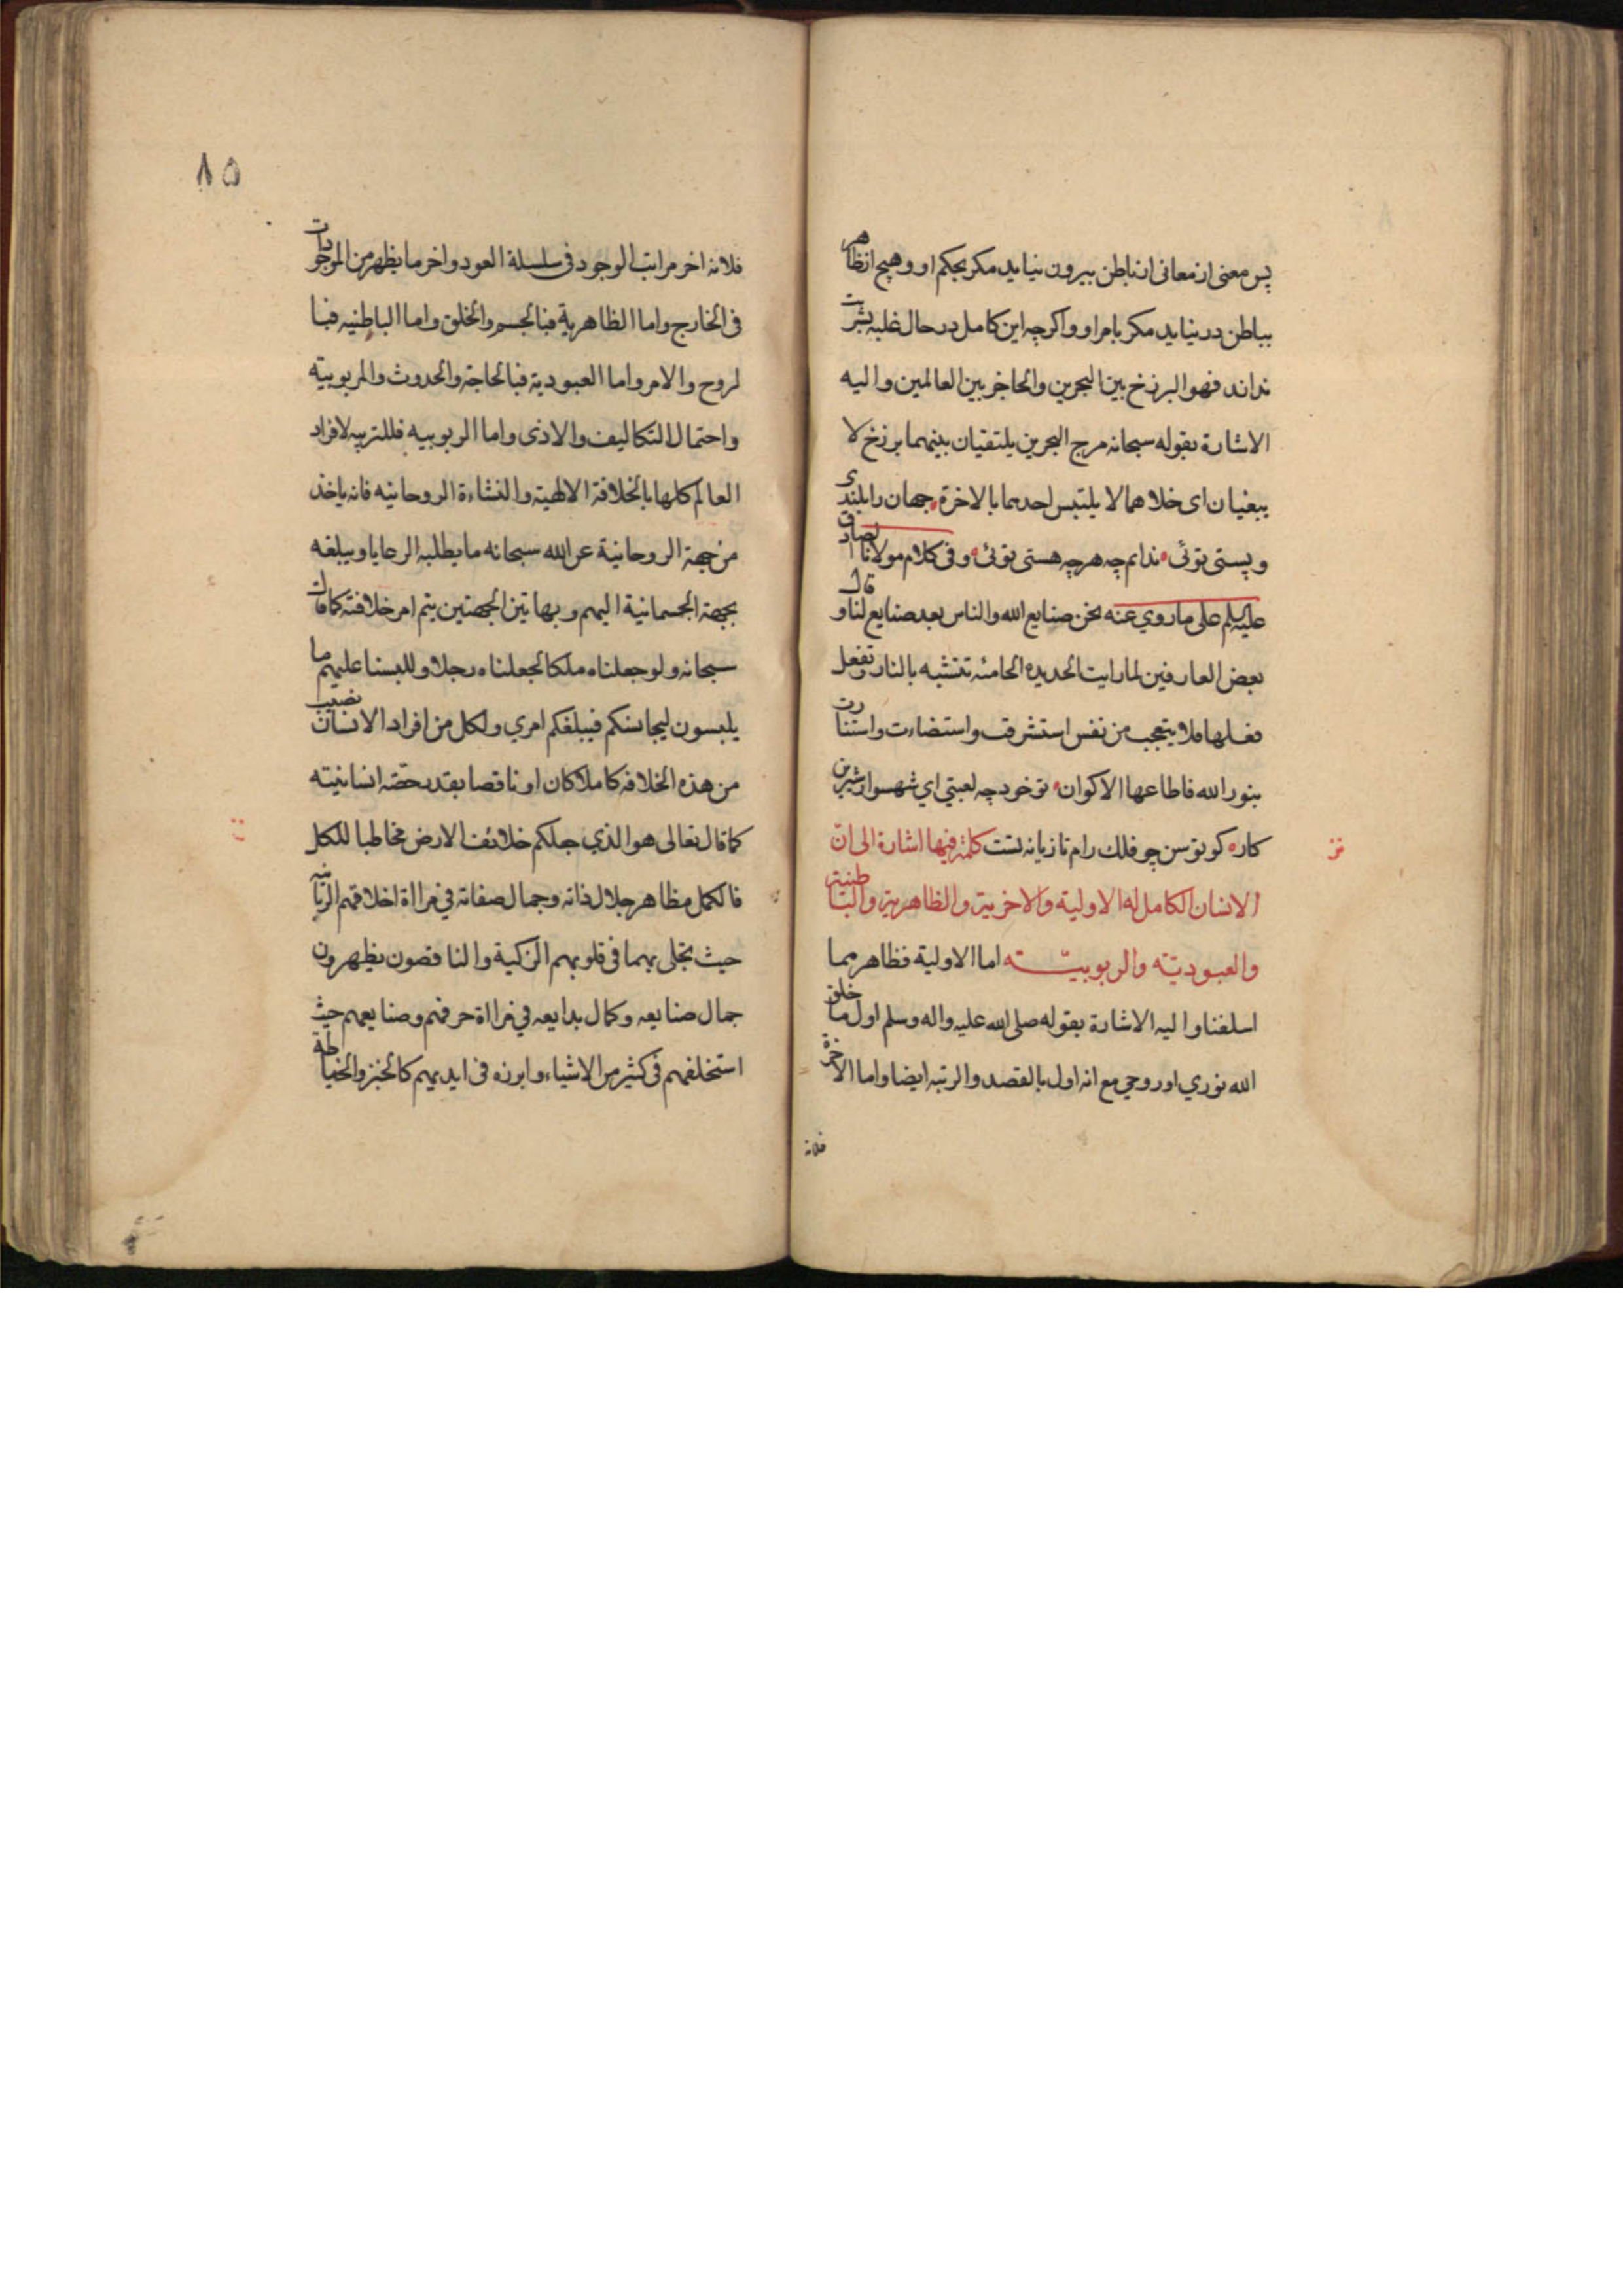 پس معنی از معانی از باطن بیرون نیاید مکر بحکم او و هیچ از ظاهر
بباطن در نیاید مکر بامر او واکرچه این کامل در حال غلبه بشریت
نداند فهو البرزخ بین البحرین والحاجز بین العالمین والیه
الاشارة بقوله سبحانه مرج البحرین یلتقیان بینهما برزخ لا
یبغیان ای خلاهما لا یلتبس احدهما بالاخرة جهان را بلندی
و پستی توئی ندانم چه هرچه هستی توئی وفی کلام مولانا الصادق
علیه السلم علی ما روي عنه نحن صنایع الله والناس بعد صنایع لنا وقال
بعض العارفین لما رایت الحدیده الحامئه تتشبه بالنار وتفعل
فعلها فلا یتعجب من نفس استشرقت واستضاءت واستنارت
بنور الله فاطاعها الاکوان تو خود چه لعبتي اي شهسوار شیرین
کاره کو توسن چو فلك رام تازیانه تست کلمة فیها اشارة الی ان
الانسان الکامل له الاولیة والاخریة والظاهریة والباطنیة
والعبودیته والربوبیته اما الاولیة فظاهر مما
اسلفنا والیه الاشارة بقوله صلی الله علیه واله وسلم اول ما خلق
الله نوري او روحي مع انه اول بالقصد والرتبه ایضا واما الاخرة
فلانه
۸۵
فلانه اخر مراتب الوجود فی سلسلة العود واخر ما یظهر من الموجودات
فی الخارج واما الظاهریة فبالجسم والخلق واما الباطنیه فبا
لروح والامر واما العبودیة فبالحاجة والحدوث والمربوبیة
واحتمال التکالیف والاذی واما الربوبیه فللتربیه لافراد
العالم کلها بالخلافة الالهیة والنشاءة الروحانیه فانه یاخذ
من جهة الروحانیة عن الله سبحانه ما یطلبه الرعایا ویبلغه
بجهة الجسمانیة الیهم وبهاتین الجهتین یتم امر خلافته کما قال
سبحانه ولو جعلناه ملکا لجعلناه رجلا وللبسنا علیهم ما
یلبسون لیجانسکم فیبلغکم امري ولکل من افراد الانسان نصیب
من هذه الخلافه کاملا کان او ناقصا بقدر حصّة انسانیته
کما قال تعالی هو الذي جعلکم خلائف الارض مخاطبا للکل
فالکمل مظاهر جلال ذاته وجمال صفاته في مراة اخلاقهم الربانیه
حیث تجلی بهما فی قلوبهم الزکیة والناقصون یظهرون
جمال صنایعه وکمال بدایعه في مراة حرفهم وصنایعهم حیث
استخلفهم فی کثیر من الاشیاء وابرزه فی ایدیهم کالخبز والخیاطة